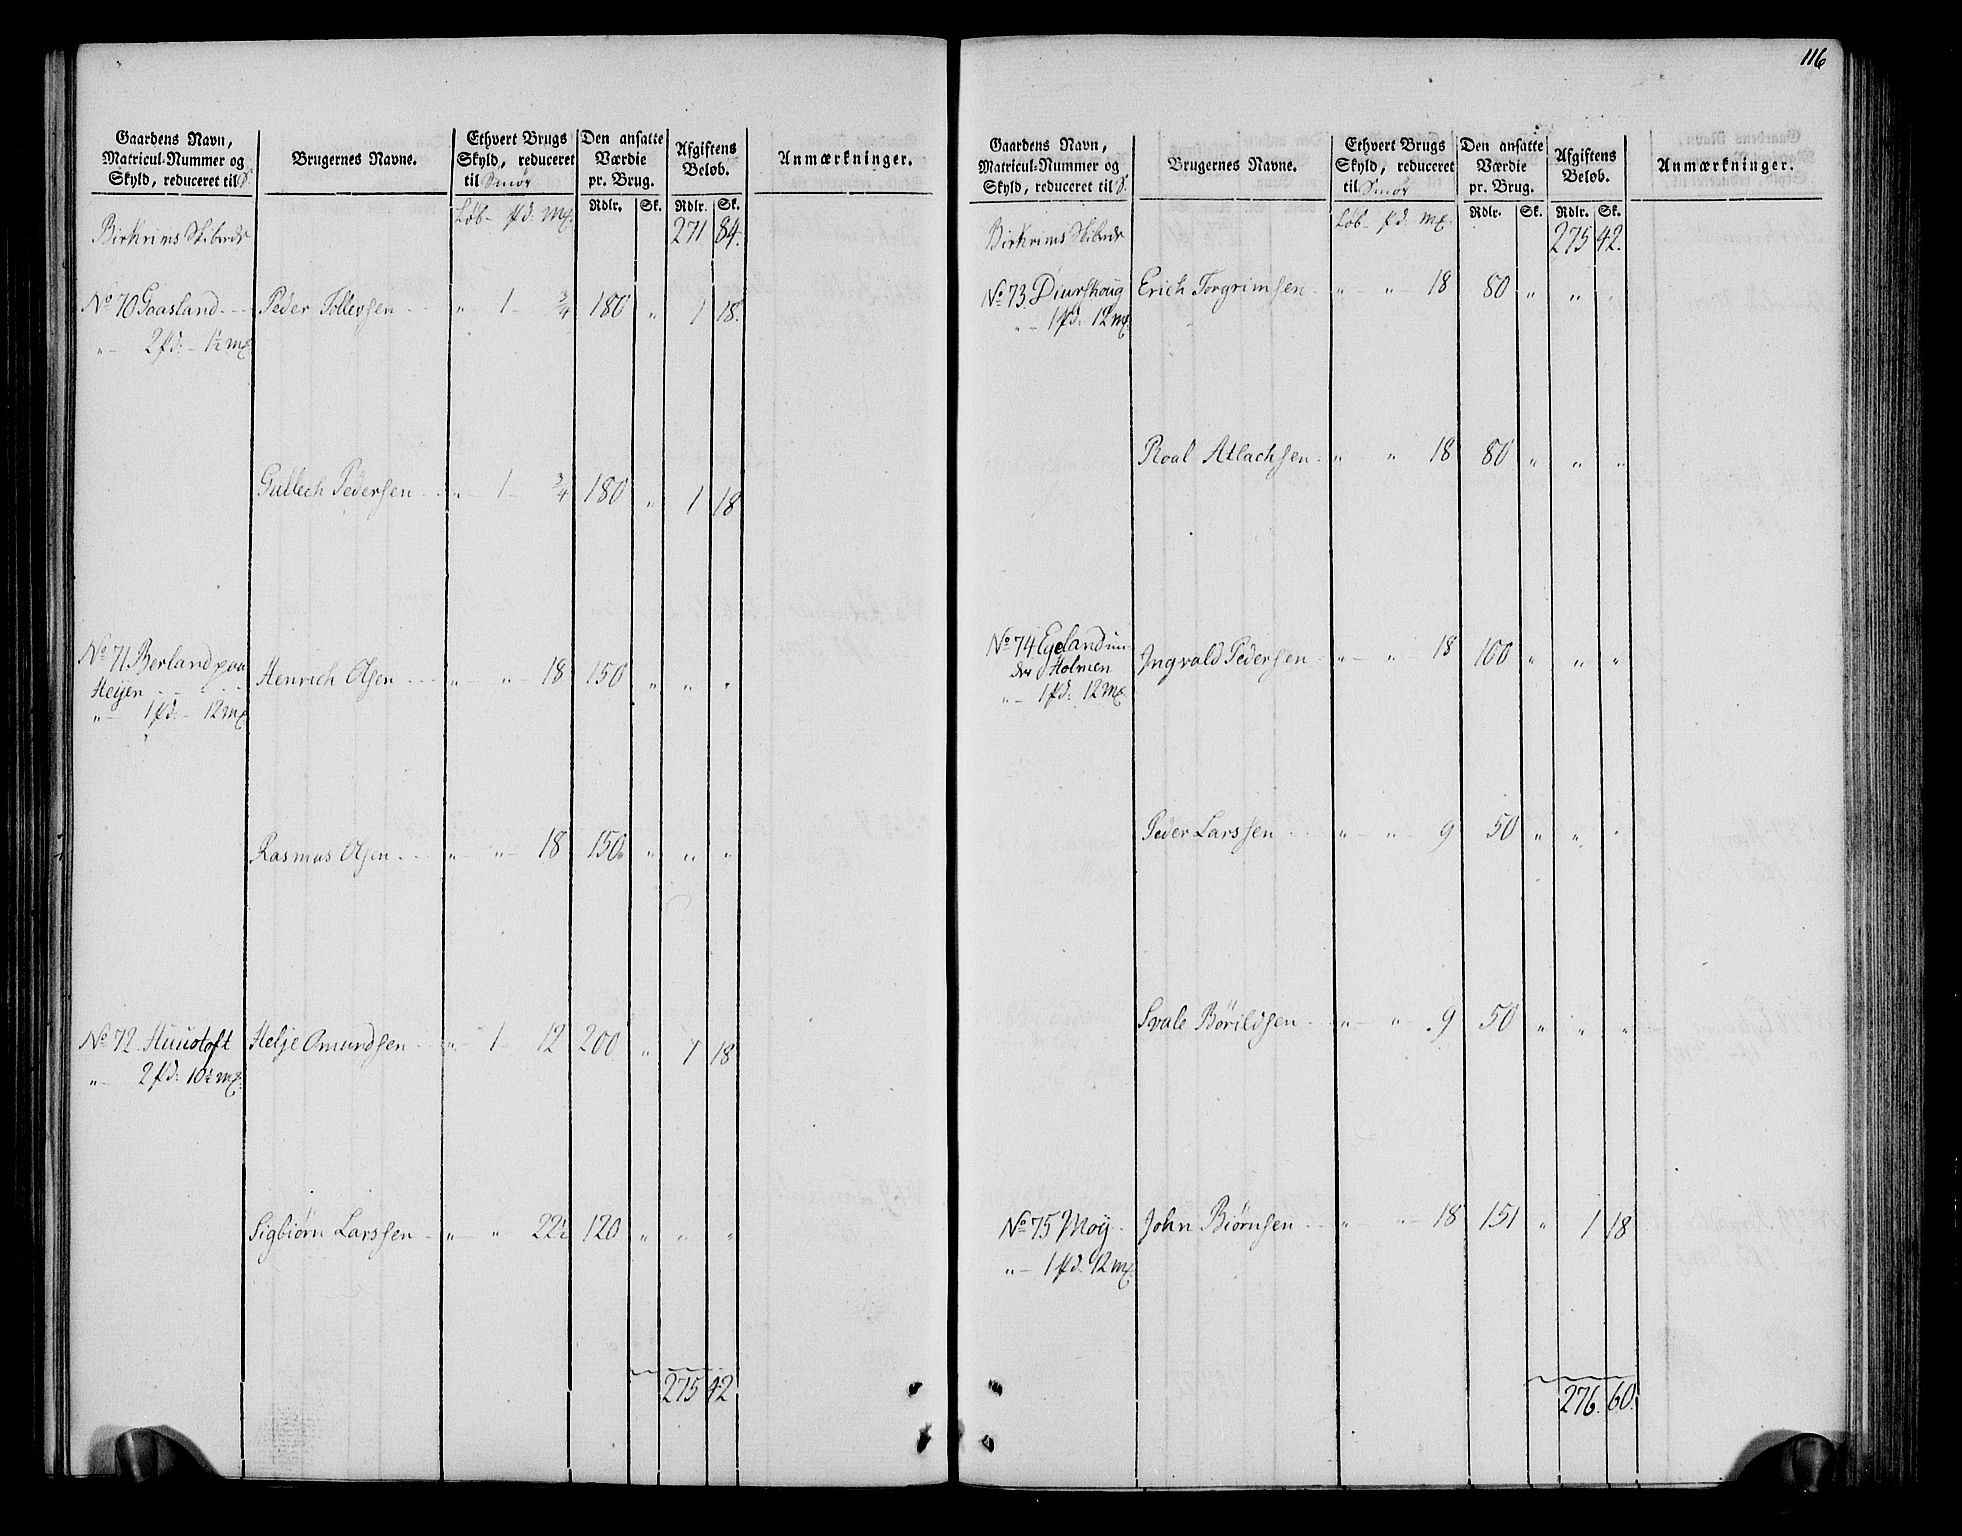 Gaardens Navn, Matricul-Nummer og Skyld, reduceret til S. | Brugernes Navne. | Ethvert Brugs Skyld, reduceret til Smør | Den ansatte Værdie pr. Brug. | Afgiftens Beløb. | Anmærkninger.
Løb - pd. mk. | Rdlr. | Sk. | Rdlr. | Sk.
Birkrims Skibrede | 271 | 84.
No 70 Gaasland - - - Peder Tollevsen - - - " 1 - 3/4 180 " 1 18.
" - 2 pd: - 1½ mk
Gullech Pedersen - - " - 1 - 3/4 180 " 1 18
No 71 Berland paa
Heijen - - - - - Henrich Olsen - - - " - " - 18 150 " " "
" - 1 pd: - 12 mk
Rasmus Olsen - - - " - " - 18 150 " " "
No 72 Huustoft Helje Omundsen - - " - 1 - 12 200 " 1 18
" - 2 pd: 10½ mk.
Sigbiørn Larssen - " - " 22½ 120 " " "
275 42
116
Gaardens Navn, Matricul-Nummer og Skyld, reduceret til S. | Brugernes Navne. | Ethvert Brugs Skyld, reduceret til Smør | Den ansatte Værdie pr. Brug. | Afgiftens Beløb. | Anmærkninger.
Løb - pd. mk. | Rdlr. | Sk. | Rdlr. | Sk.
Birkrims Skibrede | 275 | 42.
No 73. Diurskoug Erich Torgrimsen - " - " - 18 80 " " "
" - 1 pd: 12 mk.
Roal Atlachsen - " - " - 18 80 " " "
No 74 Egeland un-
der Holmen Ingvald Pedersen - " - " - 18 100 " " "
" - 1 pd: 12 mk
Peder Larssen - - " - " - 9 50 " " "
Svale Børildsen - " - " - 9 50 " " "
No 75 Moij - John Biørnsen - - " - " - 18 151 " 1 18
" - 1 pd. 12 mk.
276. 60.